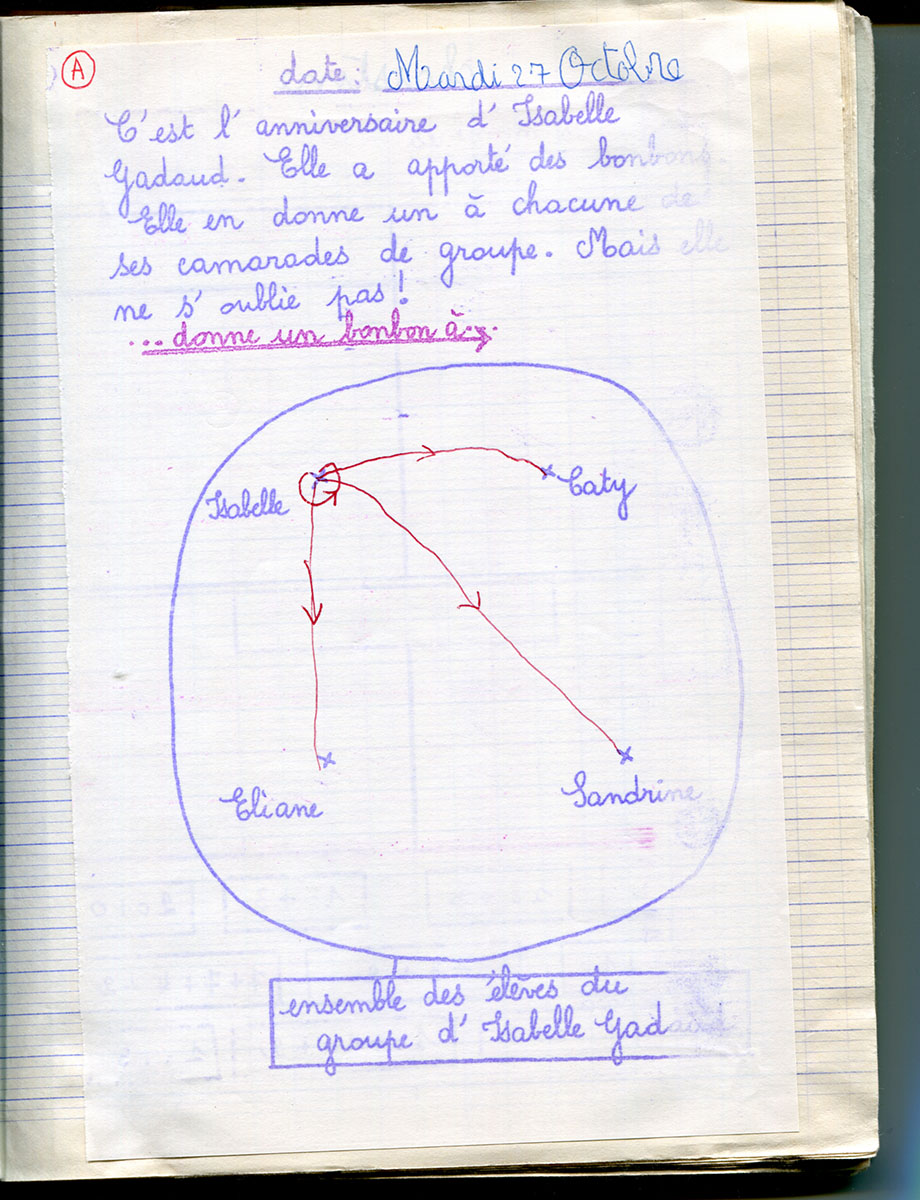 A
date: Mardi 27 Octobre
C'est l'anniversaire d'Isabelle
Gadaud. Elle a apporté des bonbons.
Elle en donne un à chacune de
ses camarades de groupe. Mais elle
ne s'oublie pas!
...donne un bonbon à...
Caty
Isabelle
Eliane
Sandrine
ensemble des élèves du
groupe d'Isabelle Gadaud